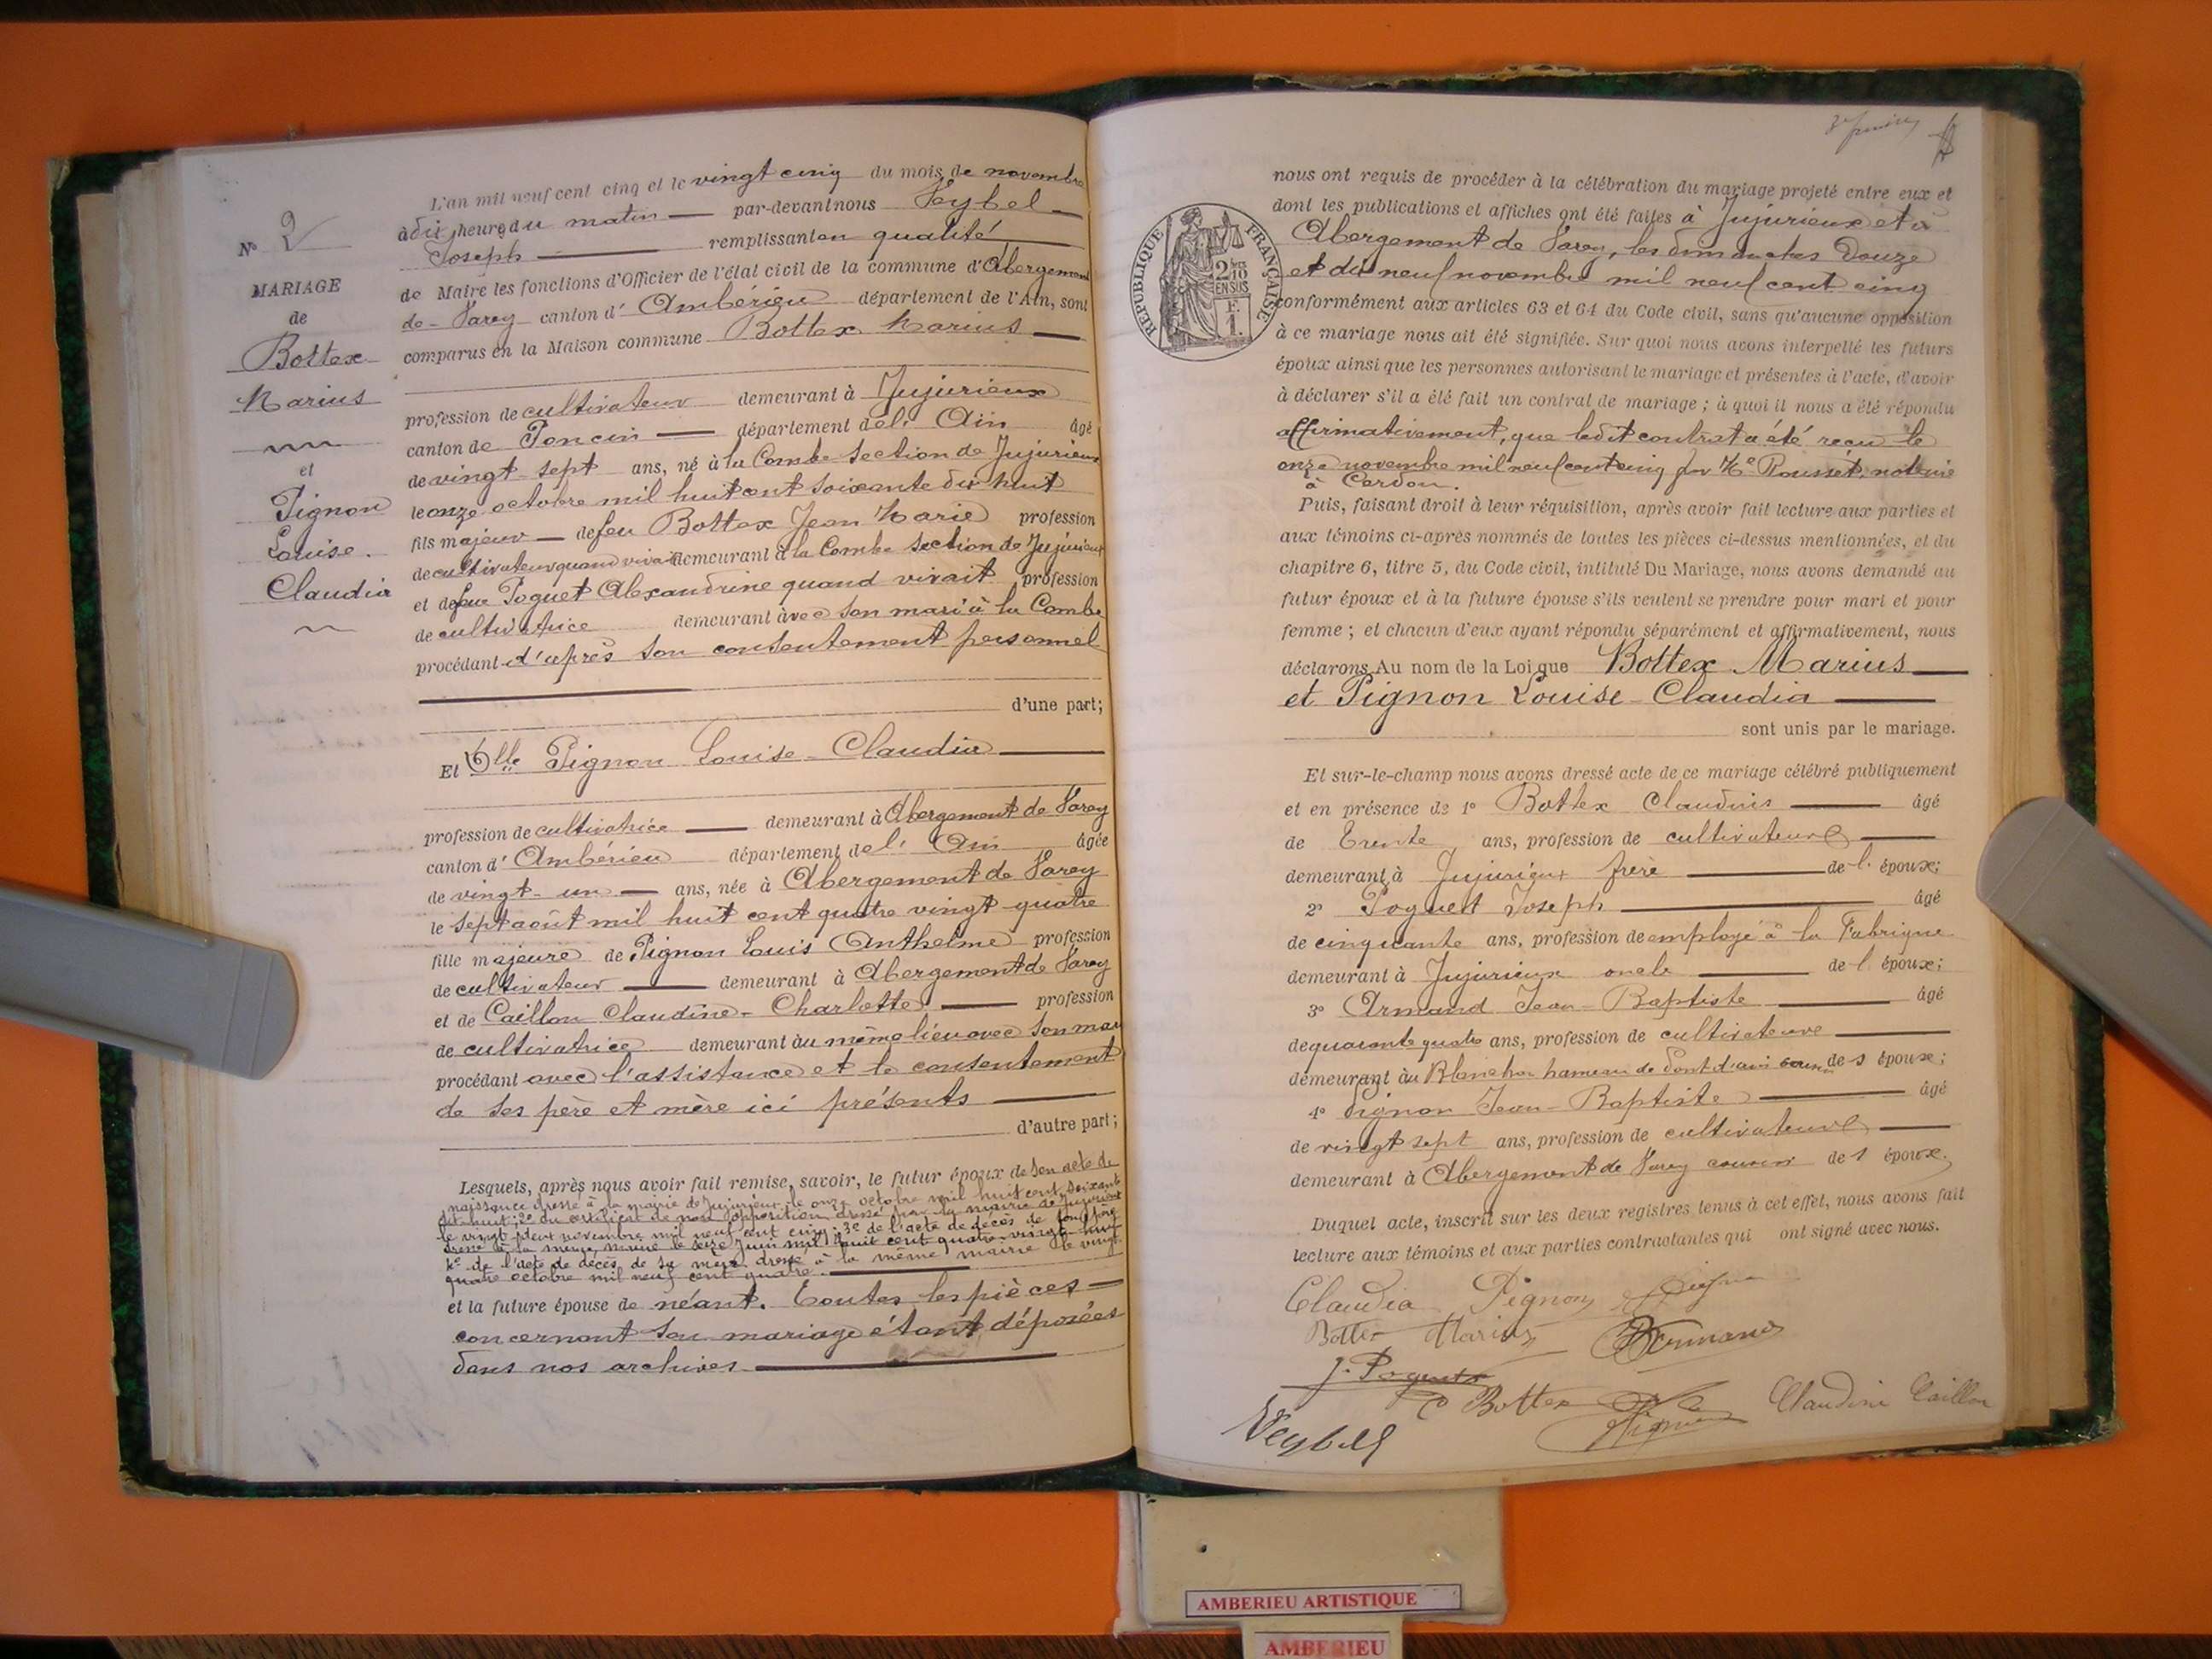 N° 2
MARIAGE
de
Bottex
Marius
et
Pignon
Louise
Claudia
L'an mil neuf cent cinq et le vingt cinq du mois de novembre
à dix heures du matin par-devant nous Veybel
Joseph remplissant en qualité
de Maire les fonctions d'Officier de l'état civil de la commune d'Abergement
de Varey canton d'Ambérieu département de l'Ain, sont
comparus en la Maison commune Bottex Marius
profession de cultivateur demeurant à Jujurieux
canton de Poncin département de l'Ain âgé
de vingt sept ans, né à la Combe section de Jujurieux
le onze octobre mil huit cent soixante dix huit
fils majeur de feu Bottex Jean Marie profession
de cultivateur quand vivait demeurant à la Combe section de Jujurieux
et de feue Poguet Alexandrine quand vivait profession
de cultivatrice demeurant avec son mari à la Combe
procédant d'après son consentement personnel
d'une part;
Et Dlle Pignon Louise-Claudia
profession de cultivatrice demeurant à Abergement de Varey
canton d'Ambérieu département de l'Ain âgée
de vingt-un ans, née à Abergement de Varey
le sept août mil huit cent quatre vingt quatre
fille majeure de Pignon Louis Anthelme profession
de cultivateur demeurant à Abergement de Varey
et de Caillon Claudine-Charlotte profession
de cultivatrice demeurant au même lieu avec son mari
procédant avec l'assistance et le consentement
de ses père et mère ici présents
d'autre part;
Lesquels, après nous avoir fait remise, savoir, le futur époux de son acte de
naissance dressé à la mairie de Jujurieux le onze octobre mil huit cent soixante
dix huit; 2° du certificat de non opposition dressé par la mairie de Jujurieux
le vingt deux novembre mil neuf cent cinq; 3° de l'acte de décès de son père
dressé à la même mairie le seize juin mil huit cent quatre-vingt-huit
4° de l'acte de décès de sa mère dressé à la même mairie le vingt
quatre octobre mil neuf cent quatre.
et la future épouse de néant. Toutes les pièces
concernant son mariage étant déposées
dans nos archives
nous ont requis de procéder à la célébration du mariage projeté entre eux et
dont les publications et affiches ont été faites à Jujurieux et à
Abergement de Varey, les dimanches Douze
et dix neuf novembre mil neuf cent cinq
conformément aux articles 63 et 64 du Code civil, sans qu'aucune opposition
à ce mariage nous ait été signifiée. Sur quoi nous avons interpellé les futurs
époux ainsi que les personnes autorisant le mariage et présentes à l'acte, d'avoir
à déclarer s'il a été fait un contrat de mariage; à quoi il nous a été répondu
affirmativement, que ledit contrat a été reçu le
onze novembre mil neuf cent cinq par Me Rousset, notaire
à Cerdon.
Puis, faisant droit à leur réquisition, après avoir fait lecture aux parties et
aux témoins ci-après nommés de toutes les pièces ci-dessus mentionnées, et du
chapitre 6, titre 5, du Code civil, intitulé Du Mariage, nous avons demandé au
futur époux et à la future épouse s'ils veulent se prendre pour mari et pour
femme; et chacun d'eux ayant répondu séparément et affirmativement, nous
déclarons Au nom de la Loi que Bottex Marius
et Pignon Louise-Claudia
sont unis par le mariage.
Et sur-le-champ nous avons dressé acte de ce mariage célébré publiquement
et en présence de 1° Bottex Claudius âgé
de Trente ans, profession de cultivateur
demeurant à Jujurieux frère de l'époux;
2° Poguet Joseph âgé
de cinquante ans, profession de employé à la Fabrique
demeurant à Jujurieux oncle de l'époux;
3° Armand Jean-Baptiste âgé
de quarante quatre ans, profession de cultivateur
demeurant au Blanchon hameau de Pont d'ain cousin de l'épouse;
4° Pignon Jean-Baptiste âgé
de vingt sept ans, profession de cultivateur
demeurant à Abergement de Varey cousin de l'épouse
Duquel acte, inscrit sur les deux registres tenus à cet effet, nous avons fait
lecture aux témoins et aux parties contractantes qui ont signé avec nous.
Claudia Pignon
Bottex Marius Armand
J. Poguet
C Bottex Pignon Claudine Caillon
Veybel
RÉPUBLIQUE FRANÇAISE
2/10
EN SUS
1 F.
AMBERIEU ARTISTIQUE
AMBERIEU